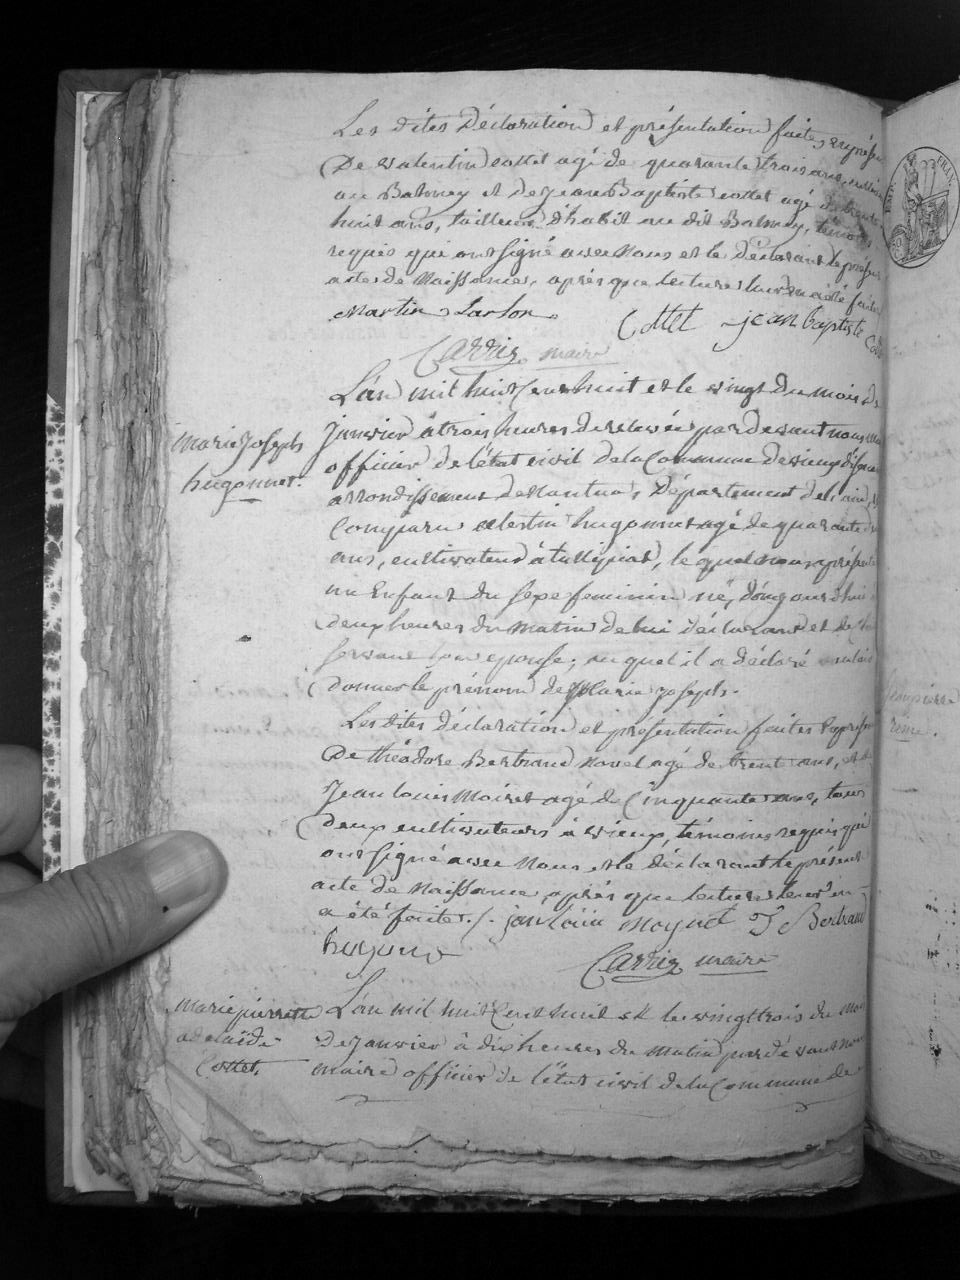 Les dites Déclaration et présentation faites, en présence
De Valentin Cottet agé de quarante trois ans,
au Balmey et de Jean Baptiste Cottet agé de trente
huit ans, tailleur d'habit au dit Balmey, témoins
requis qui ont signé avec Nous et le Déclarant le présent
acte de Naissance, après que lecture leur en a été faite
Martin Larson Cottet jean baptiste
Carrier maire
L'an mil huit Cent huit et le vingt du mois de
Janvier à trois heures de relevée par devant nous
officier de l'état civil de la Commune de vieux d'izenave
arrondissement de Nantua, Département de l'ain,
Comparu Celestin hugonnet agé de quarante
ans, cultivateur à tallipiat, le quel nous a présenté
un Enfant du sexe feminin né, d'aujourd'hui à
deux heures du matin de lui déclarant et de
son epouse, au quel il a déclaré vouloir
donner le prénom de Marie joseph.
Les dites déclaration et présentation faites en présence
De théodore Bertrand Novel agé de trent ans, et de
Jean Louis Moiret agé de Cinquante ans, tous
deux cultivateurs à vieux, témoins requis qui
ont signé avec Nous et le déclarant le présent
acte de Naissance, après que lecture leur en
a été faite./. jan louis moynet T Bertrand
Carrier maire
Marie Joseph
hugonnet.
L'an mil huit Cent huit et le vingt trois du mois
De Janvier à dix heures du Matin par dévant nous
maire officier de l'état civil de la Commune de
Marie pierrette
adelaïde
Cottet.